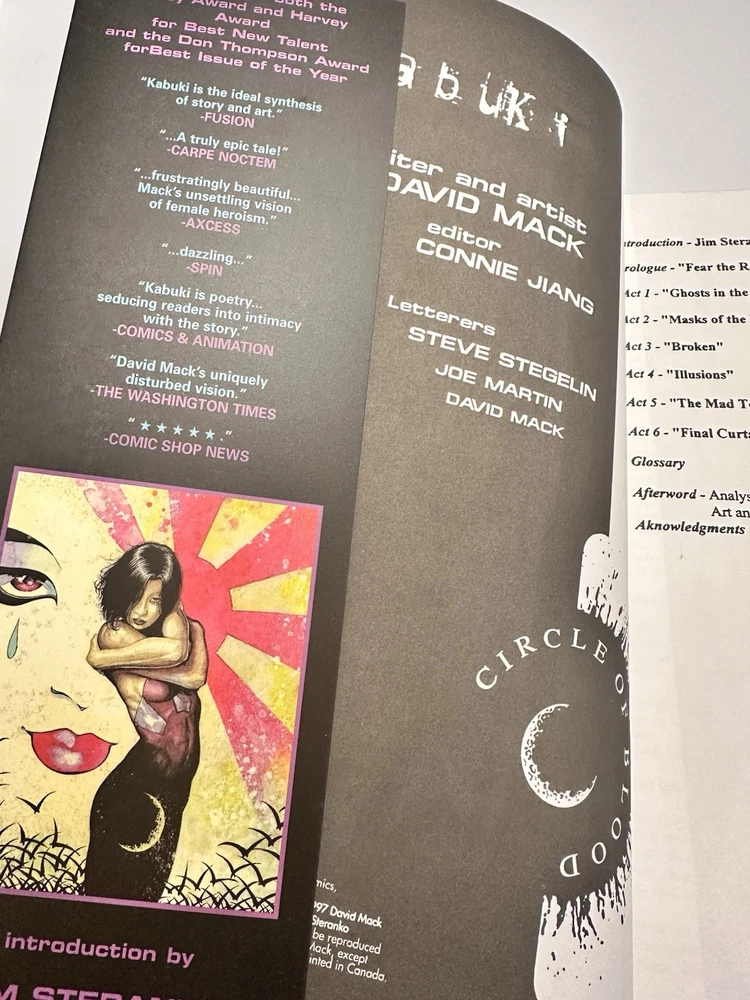 both the
Award and Harvey
Award
for Best New Talent
and the Don Thompson Award
forBest Issue of the Year
"Kabuki is the ideal synthesis
of story and art."
-FUSION
"...A truly epic tale!"
-CARPE NOCTEM
"...frustratingly beautiful...
Mack's unsettling vision
of female heroism."
-AXCESS
"...dazzling..."
-SPIN
"Kabuki is poetry...
seducing readers into intimacy
with the story."
-COMICS & ANIMATION
"David Mack's uniquely
disturbed vision."
-THE WASHINGTON TIMES
"★★★★★."
-COMIC SHOP NEWS
introduction by
abuki
iter and artist
DAVID MACK
editor
CONNIE JIANG
Letterers
STEVE STEGELIN
JOE MARTIN
DAVID MACK
CIRCLE OF BLOOD
mics,
97 David Mack
Steranko
be reproduced
Mack, except
inted in Canada,
troduction - Jim Stera
rologue - "Fear the R
Act 1 - "Ghosts in the
Act 2 - "Masks of the
Act 3 - "Broken"
Act 4 - "Illusions"
Act 5 - "The Mad T
Act 6 - "Final Curt
Glossary
Afterword - Analys
Art an
Aknowledgments